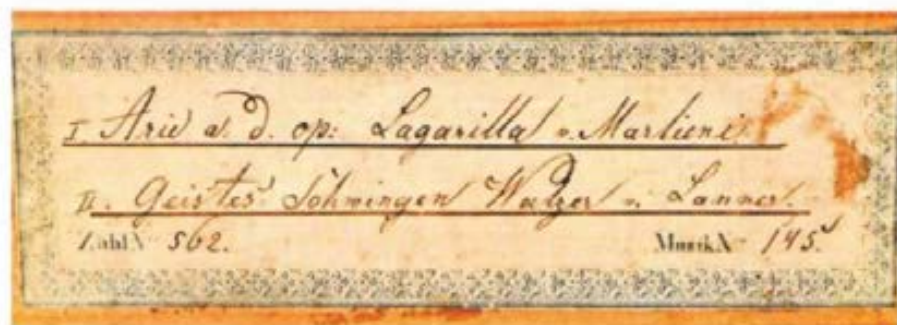 I. Arie a. d. op: Lagarilla v. Marlieni.
II. Geistes Söhningen Walzer v. Lanner.
Zahl No 562. Musik No 145.